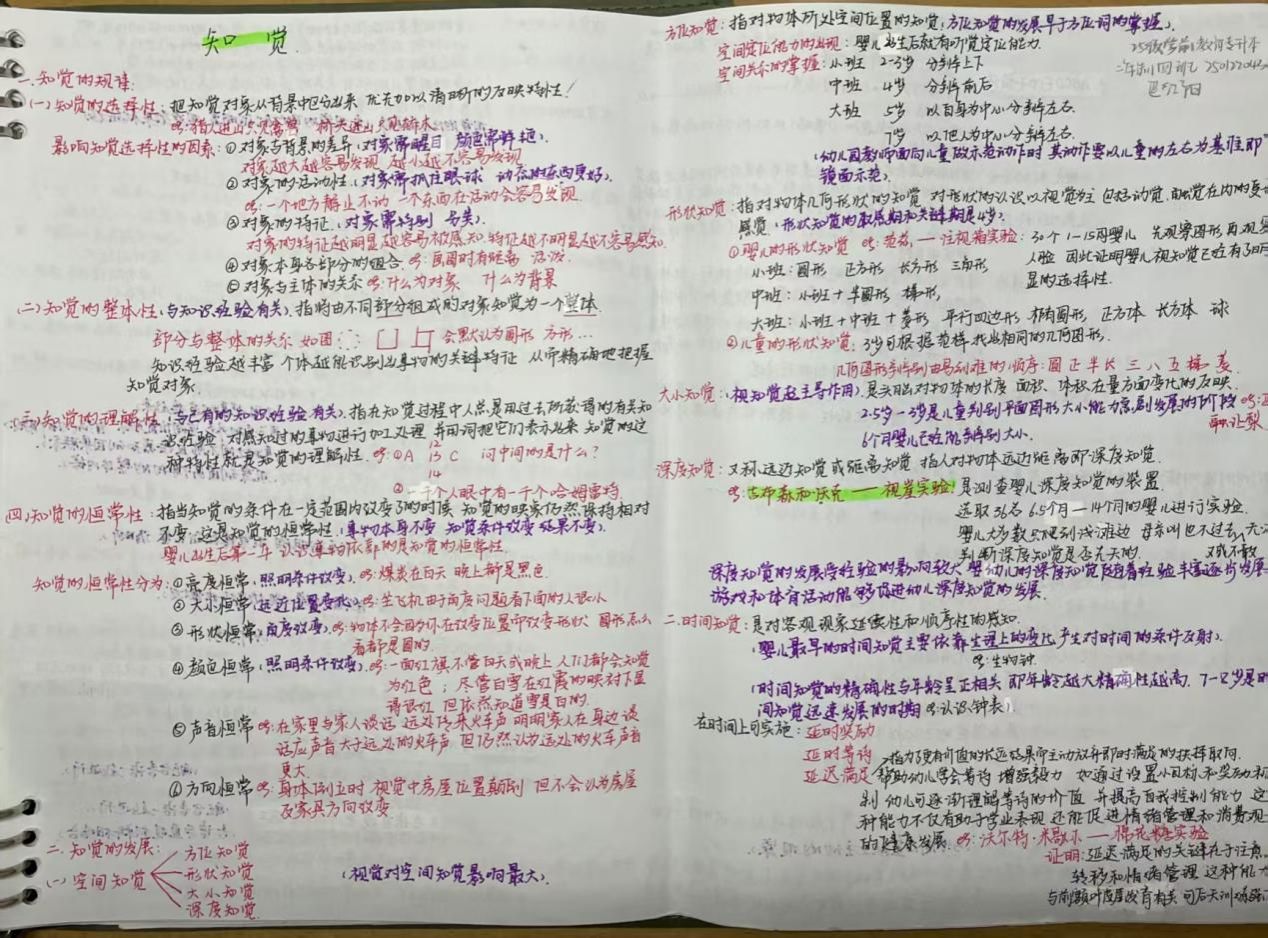 知 觉
一.知觉的规律:
(一)知觉的选择性:把知觉对象从背景中区分出来 优先加以清晰的反映特性!
eg:猎人进山只见禽兽 樵夫进山只见柴木
影响知觉选择性的因素:①对象与背景的差异(对象需醒目 颜色需鲜艳).
对象越大越容易发现 越小越不容易发现
②对象的活动性(对象需抓住眼球 动态的东西更好).
eg:一个地方静止不动 一个东西在活动会容易发现.
③对象的特征(对象需特别 另类).
对象的特征越明显越容易被感知.特征越不明显越不容易感知
④对象本身各部分的组合.eg:
⑤对象与主体的关系 eg:什么为对象 什么为背景
(二)知觉的整体性(与知识经验有关).指将由不同部分组成的对象知觉为一个整体.
部分与整体的关系 如图: 会默认为圆形 方形…
知识经验越丰富 个体越能识别出事物的关键特征 从而精确地把握
知觉对象.
(三)知觉的理解性(与已有的知识经验有关).指在知觉过程中人总是用过去所获得的有关知
识经验 对感知过的事物进行加工处理 并用词把它们表示出来 知觉的这
种特性就是知觉的理解性. eg:①A 13 C 问中间的是什么?
12
14
②一千个人眼中有一千个哈姆雷特.
(四)知觉的恒常性:指当知觉的条件在一定范围内改变了的时候 知觉的映象仍然保持相对
不变.这是知觉的恒常性.(事物本身不变 知觉条件改变 结果不变).
婴儿出生后第一年 认识事物依靠的是知觉的恒常性.
知觉的恒常性分为:①亮度恒常(照明条件改变).eg:煤炭在白天 晚上都是黑色.
②大小恒常(远近位置变化).eg:坐飞机由于角度问题看下面的人很小
③形状恒常(角度改变).eg:物体不会因为你在改变位置而改变形状 圆形怎么
看都是圆的.
④颜色恒常(照明条件改变).eg:一面红旗不管白天或晚上 人们都会知觉
为红色;尽管白雪在红霞的映衬下显
得很红 但依然知道雪是白的.
⑤声音恒常 eg:在家里与家人谈话 远处传来火车声 明明家人在身边谈
话应声音大于远处的火车声 但仍然认为远处的火车声音
更大.
⑥方向恒常 eg:身体倒立时 视觉中房屋位置颠倒 但不会认为房屋
及家具方向改变
二.知觉的发展:
(一)空间知觉
方位知觉
形状知觉
大小知觉
深度知觉.
(视觉对空间知觉影响最大).
方位知觉:指对物体所处空间位置的知觉(方位知觉的发展早于方位词的掌握).
空间定位能力的出现:婴儿出生后就有听觉定位能力.
空间关系的掌握:小班 2-3岁 分辨上下
中班 4岁 分辨前后
大班 5岁 以自身为中心分辨左右.
7岁 以他人为中心分辨左右.
(幼儿园教师面向儿童做示范动作时 其动作要以儿童的左右为基准即“
镜面示范).
形状知觉:指对物体几何形状的知觉 对形状的认识以视觉为主 包括动觉.触觉在内的复
感觉.(形状知觉的敏感期和关键期是4岁).
①婴儿的形状知觉 eg:范兹——注视箱实验:30个1-15周婴儿 先观察图形再观察
人脸 因此证明婴儿视知觉已经有了明
显的选择性.
小班:圆形 正方形 长方形 三角形
中班:小班+半圆形 梯形,
大班:小班+中班+菱形 平行四边形 椭圆形 正方体 长方体 球
②儿童的形状知觉:3岁可根据范样 找出相同的几何图形.
几何图形辨别由易到难的顺序:圆 正 半 长 三 八 五 梯 菱
大小知觉:(视知觉起主导作用).是头脑对物体的长度 面积 体积在量方面变化的反映.
2.5岁-3岁是儿童判别平面图形大小能力急剧发展的阶段 eg:
6个月婴儿已经能辨别大小.
深度知觉:又称远近知觉或距离知觉 指人对物体远近距离即深度知觉.
eg:吉布森和沃克——视崖实验 是测查婴儿深度知觉的装置.
选取36名6.5个月—14个月的婴儿进行实验.
婴儿大多数只爬到浅滩边 母亲叫也不过去.
判断深度知觉是否先天的.
深度知觉的发展受经验的影响较大 婴幼儿的深度知觉随着经验丰富逐步发展
游戏和体育活动能够促进幼儿深度知觉的发展.
二.时间知觉:是对客观现象延续性和顺序性的感知.
(婴儿最早的时间知觉主要依靠生理上的变化产生对时间的条件反射).
eg:生物钟
(时间知觉的精确性与年龄呈正相关 即年龄越大精确性越高. 7-8岁是时
间知觉迅速发展的时期 eg:认识钟表).
在时间上可实施:延时奖励
延时等待
延迟满足
指为了更有价值的长远结果而主动放弃即时满足的抉择取向.
帮助幼儿学会等待 增强毅力 如通过设置小目标和奖励机
制 幼儿可逐渐理解等待的价值 并提高自我控制能力 这
种能力不仅有助于学业表现 还能促进情绪管理和消费观
的健康发展 eg:沃尔特·米歇尔——棉花糖实验
证明:延迟满足的关键在于注意
转移和情绪管理 这种能力
与前额叶皮层发育有关 可后天训练